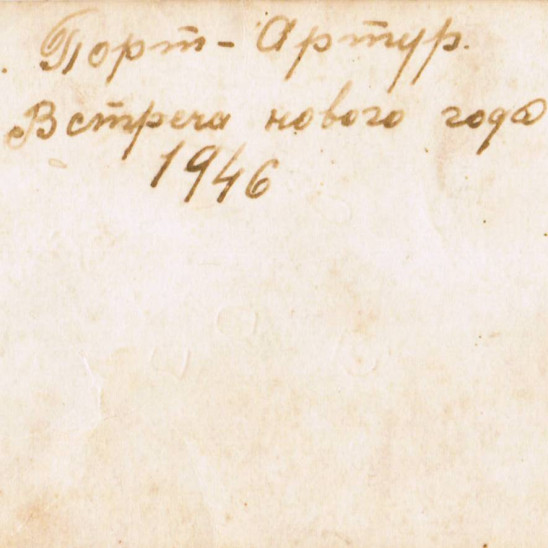 Порт-Артур.
Встреча нового года
1946